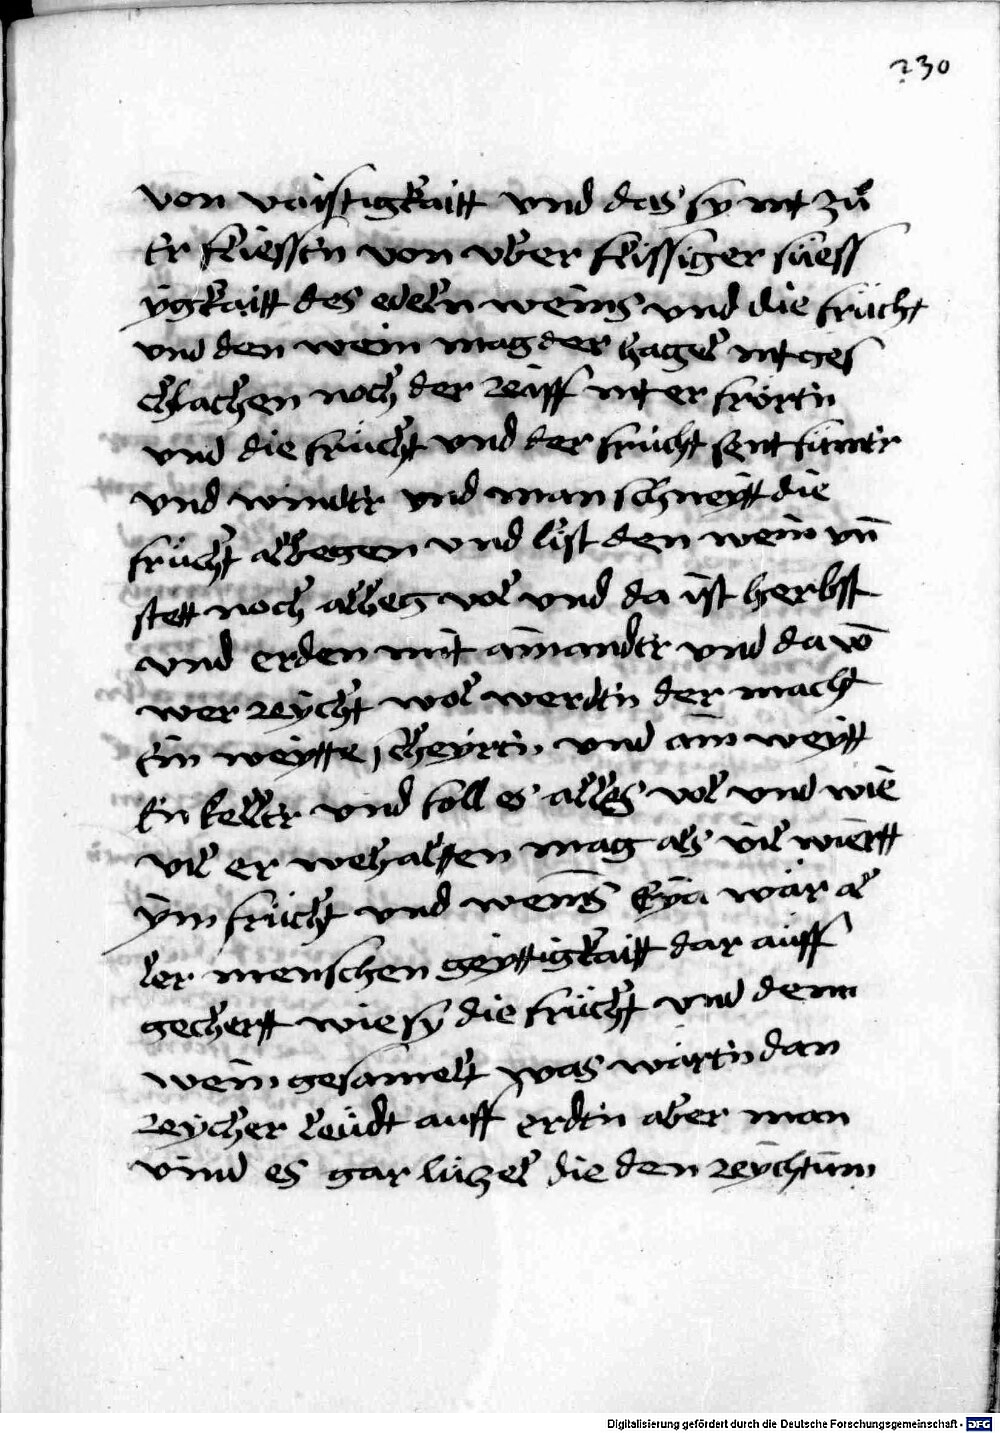 230
von vaistigkaitt vnd das sy nit zů
er fliessen von vber flissiger süess
ygkaitt des edeln weins vnd die frücht
vnd den wein mag der hagel nit ges
chlachen noch der reiff nit er frörn
vnd die frücht vnd der frücht sent sumer
vnd winder vnd man schneytt die
frücht alwegen vnd list den wein vn̄
stett noch alweg vol vnd da ist herbst
vnd erden mit ainander vnd da vō
wer reycht wol werden der macht
Ein weytte scheyrn vnd ain weytt
En keller vnd foll es alles vol vnd wie
vil er wehalten mag als vil wiertt
ym frücht vnd weins Eya wär al
ler menschen geyttigkaitt dar auff
gechertt wie sy die frücht vnd denn
wein gesamelt was wärn dan
reycher leüdt auff erdn aber man
vind es gar lüczel die den reychtum
Digitalisierung gefördert durch die Deutsche Forschungsgemeinschaft - DFG